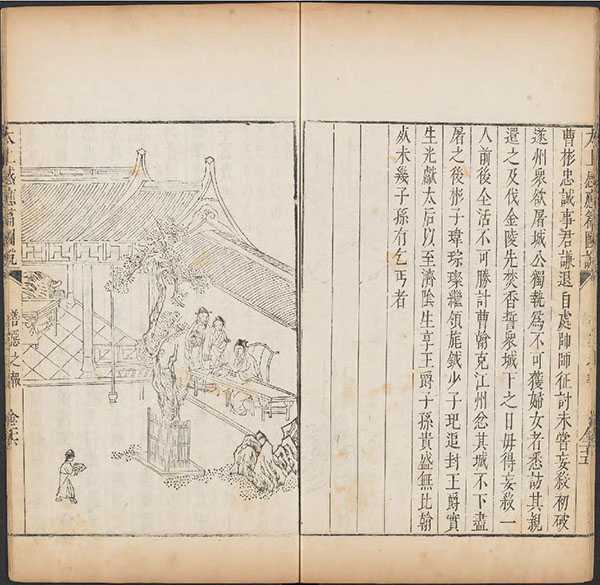 太上感應篇圖說
曹彬忠誠事君謙退自處帥師征討未嘗妄殺初破
遂州眾欲屠城公獨執爲不可獲婦女者悉訪其親
還之及伐金陵先焚香誓眾城下之日毋得妄殺一
人前後全活不可勝計曹翰克江州忿其城不下盡
屠之後彬子瑋琮璨繼領旄鉞少子玘追封王爵實
生光獻太后以至濟陰生享王爵子孫貴盛無比翰
未幾子孫有乞丐者
太上感應篇圖說
之報